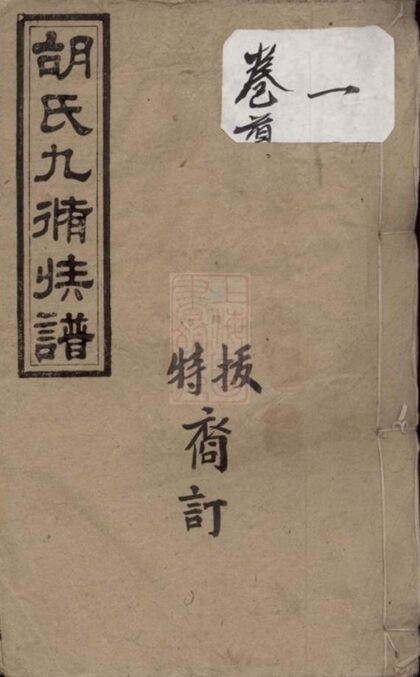 胡氏九脩族譜
卷首
一
特拔
裔訂